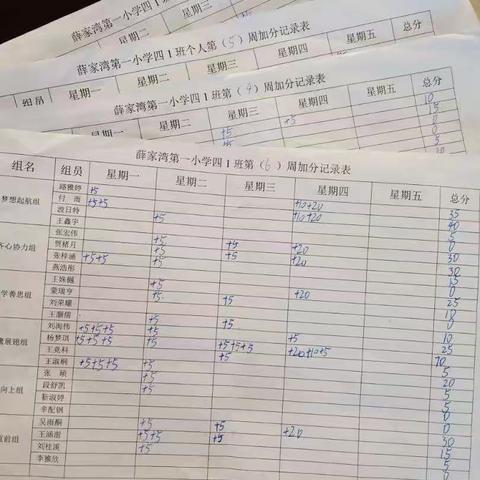 薛家湾第一小学四
星期二
星期三
薛家湾第一小学四1班个人第(5)周加分记录表
组员 星期一 星期二 星期三 星期四 星期五 总分
薛家湾第一小学四1班第(4)周加分记录表
星期一 星期二 星期三 星期四 星期五 总分
+5 +5
薛家湾第一小学四1班第(6)周加分记录表
组名 组员 星期一 星期二 星期三 星期四 星期五 总分
路雅婷 +5
梦想起航组 付雨 +5+5 +10+20
波日特 +10+20 35
王鑫宇 +5 40
张宏伟 5
齐心协力组 贺楮月 +5 +5 +20 0
张梓涵 +5+5 +5 +5 +20 30
燕浩彤 30
王姝樾 +5 15
学善思组 蒙瑞亨 +5 +20 0
刘荣耀 +5 25
王灏儒 +5 10
刘洵伟 +5+5+5 +5 +5 0
鹰展翅组 杨梦琪 +5+5+5 +5 +5 10
王竞科 +5+5+5 +20+10+5 25
王淑桐 +5+5+5 +5 +5 70
张硕 +5 5
向上组 段舒凯 +5 20
靳淑婷 5
辛配钢 5
吴雨桐 +5 +5 0
直前组 王涵谢 +5+5 +5 +20 0
刘桂溪 +5 30
李雅欣 15
5
0